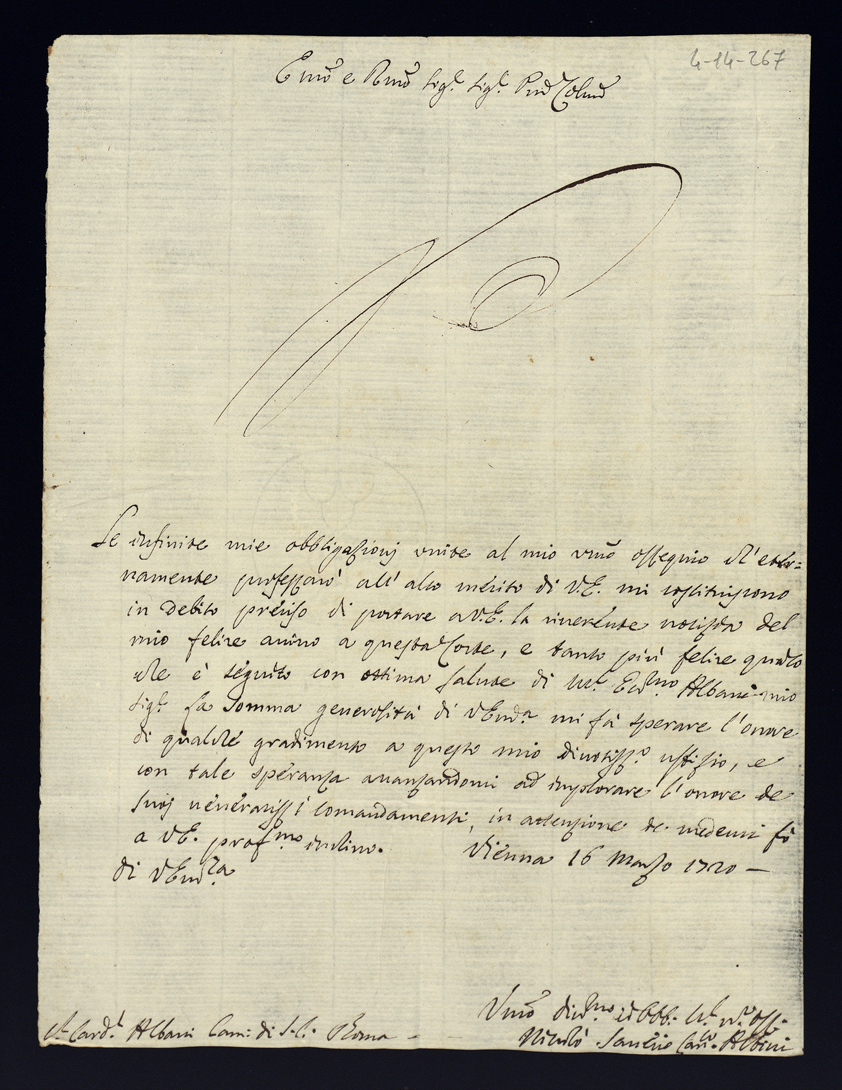 4-14-267
Emō e Rmō Sig.r Sig.r Pnē Colmō
Le infinite mie obbligazionj unite al mio umō ossequio ch'eter=
namente professarò all'alto mérito di V.E. mi costituiscono
in debito préciso di portare a V.E. la riverénte notizia del
mio felice arrivo a questa Corte, e tanto più felice quālo
che è séguito con ottima salute di Albani mio
Sig.r La Somma generosità di VEm.za mi fà sperare l'onore
di qualché gradimento a questo mio divotiss.o uffizio, e
con tale spéranza avanzandomi ad implorare l'onore de
Suoj vénératiss.i comandamenti, in attenzione de medemi fò
a VE. prof.mo inchino. Vienna 16 Marzo 1720 —
di VEm.za
Umō div.mo ed obb.
S.r Card.l Albani Cam: di S.C. Roma
Nicolò Albini